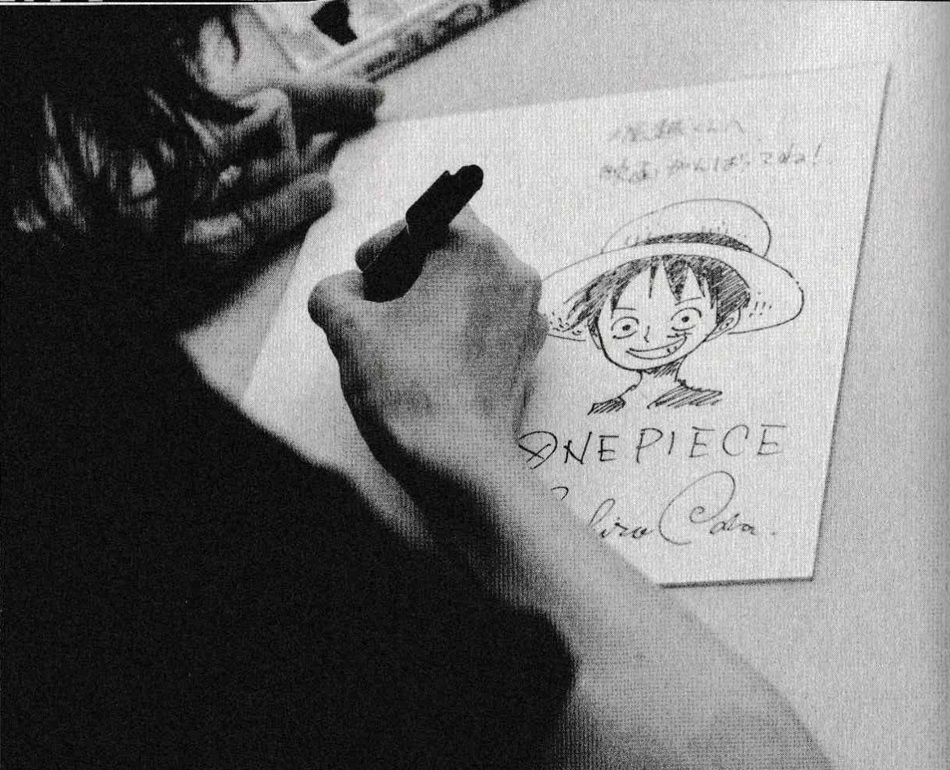 映画がんばってね!
ONE PIECE
hiro Oda.